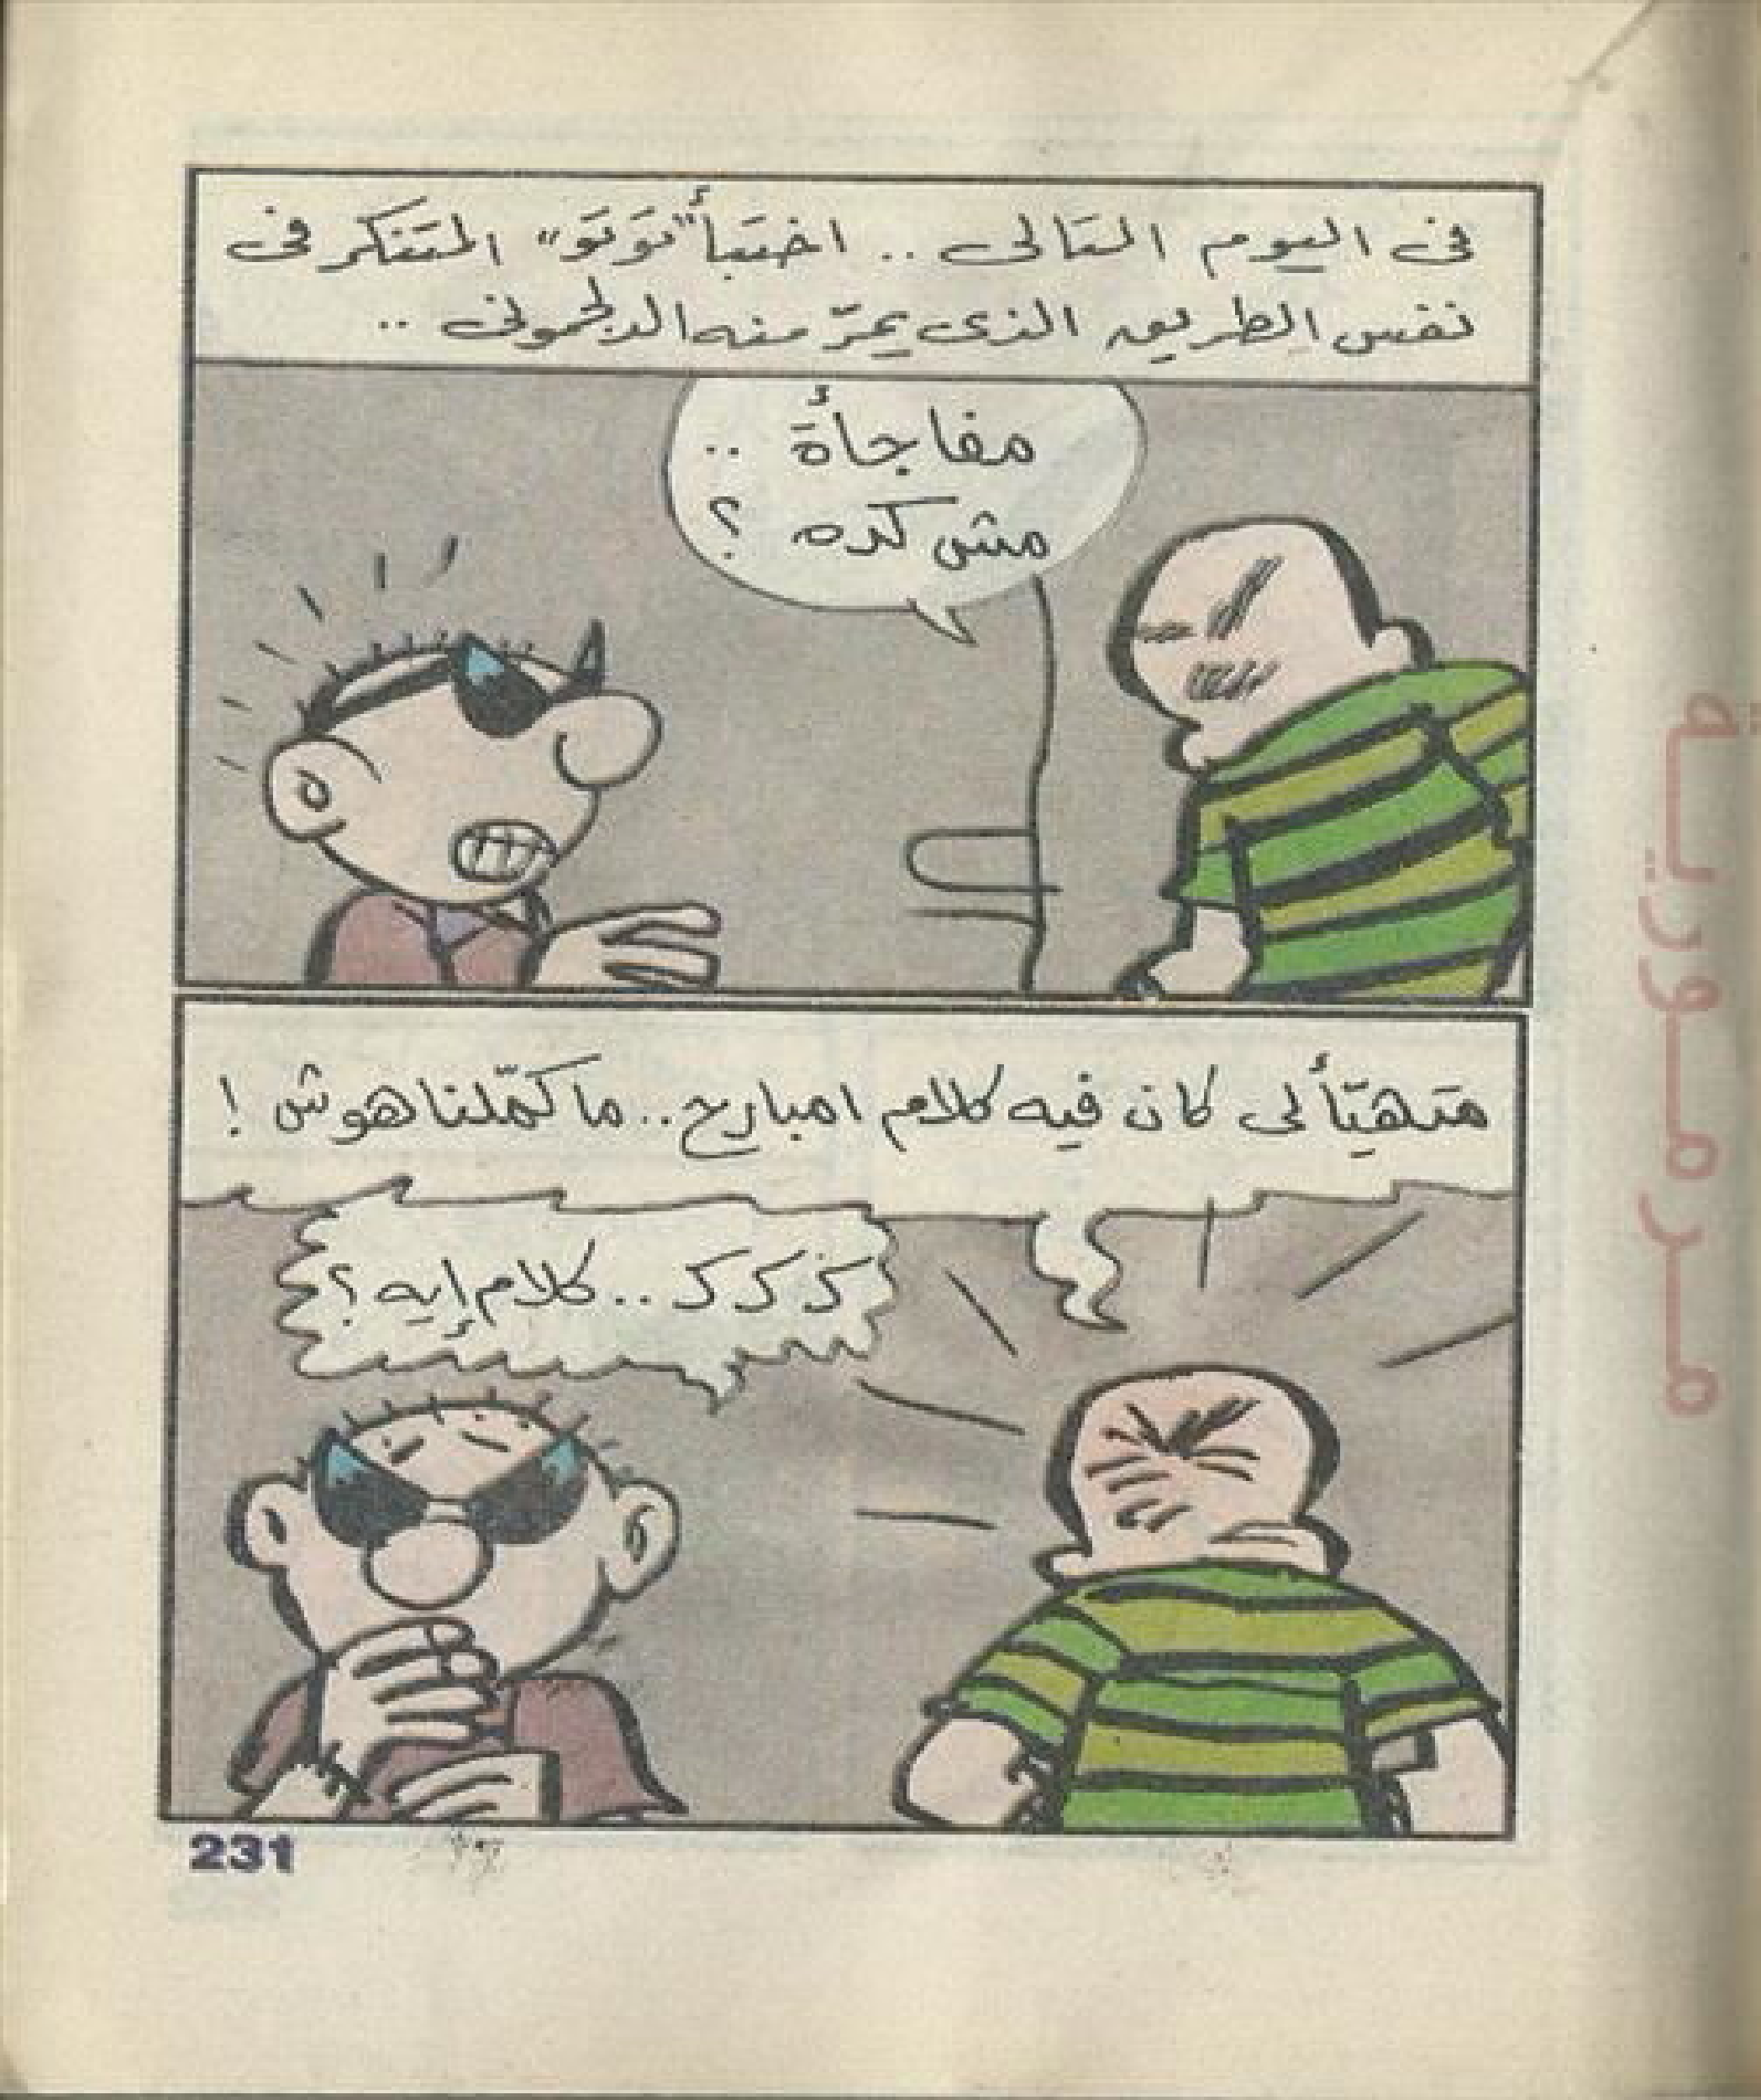 فى اليوم التالى .. اختبأ "توتو" المتنكر فى
نفس الطريق الذى يمرّ منه الدلجمونى ..
مفاجأة ..
مش كده ؟
متهيّألى كان فيه كلام امبارح .. ما كمّلناهوش !
كـ كـ كـ .. كلام إيه ؟
231
مرمورية